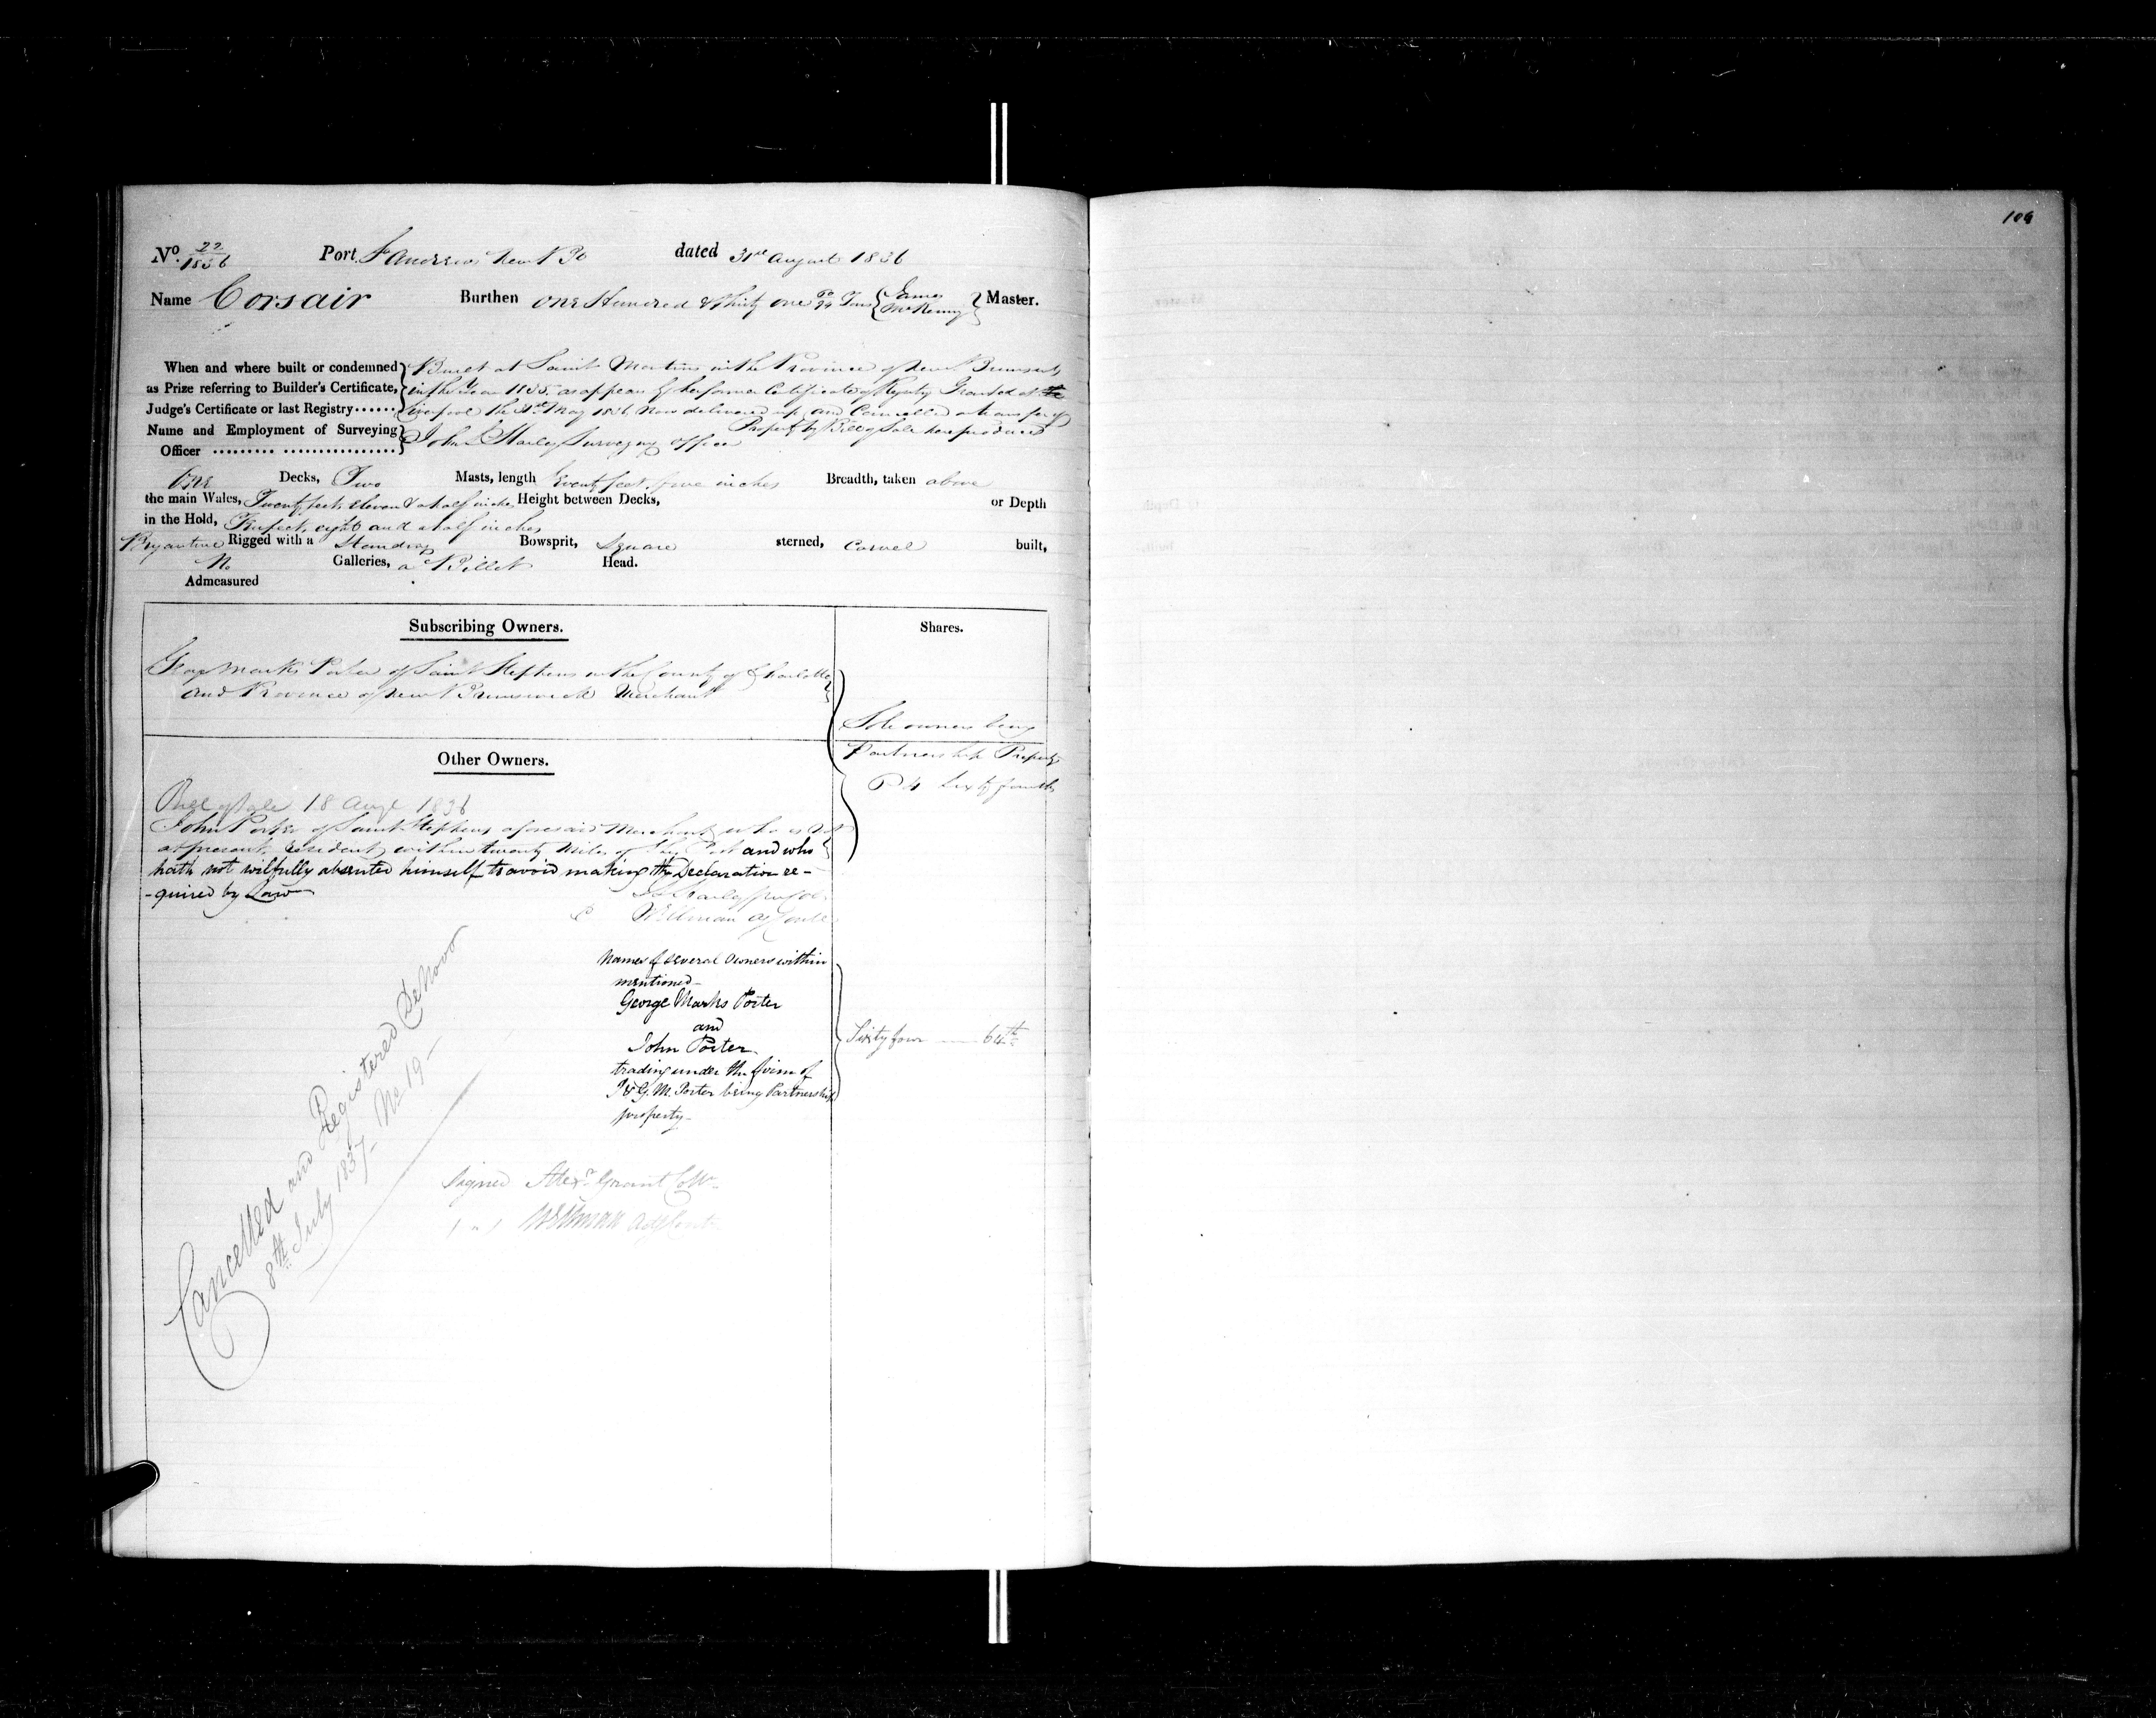 106
No. 22/1836 Port St Andrews New B dated 31st August 1836
Name Corsair Burthen One Hundred & Thirty one /94 Tons { James McKenny } Master.
When and where built or condemned as Prize referring to Builder's Certificate, Judge's Certificate or last Registry......
Built at Saint Martins in the Province of New Brunswick
in the Year 1835 as appears by her former Certificate of Registry Granted at
Liverpool the 31st May 1836 Now delivered up and Cancelled a transfer of
Property by Bill of Sale here produced
Name and Employment of Surveying Officer ......... ................
John Starley Surveying Officer
One Decks, Two Masts, length feet five inches Breadth, taken above
the main Wales, Twenty feet eleven & a half inches Height between Decks, or Depth
in the Hold, Ten feet, eight and a half inches
Brigantine Rigged with a Standing Bowsprit, Square sterned, Carvel built,
No Galleries, a Billet Head.
Admeasured
Subscribing Owners. Shares.
George Marks Porter of Saint Stephens in the County of Charlotte
and Province of New Brunswick Merchant
Sole owners being
Partnership Property
64 Sixty fourths
Other Owners.
Bill of Sale 18 Augt 1836
John Porter of Saint Stephens aforesaid Merchant who is not
at present resident within twenty Miles of this Port and who
hath not wilfully absented himself to avoid making the Declaration re-
-quired by Law
Names of several Owners within
mentioned-
George Marks Porter
and
John Porter
trading under the firm of
J & G. M. Porter being Partnership
property-
Sixty four 64th
Cancelled and Registered De Novo
8th July 1837- No 19-
Signed Alexr Grant